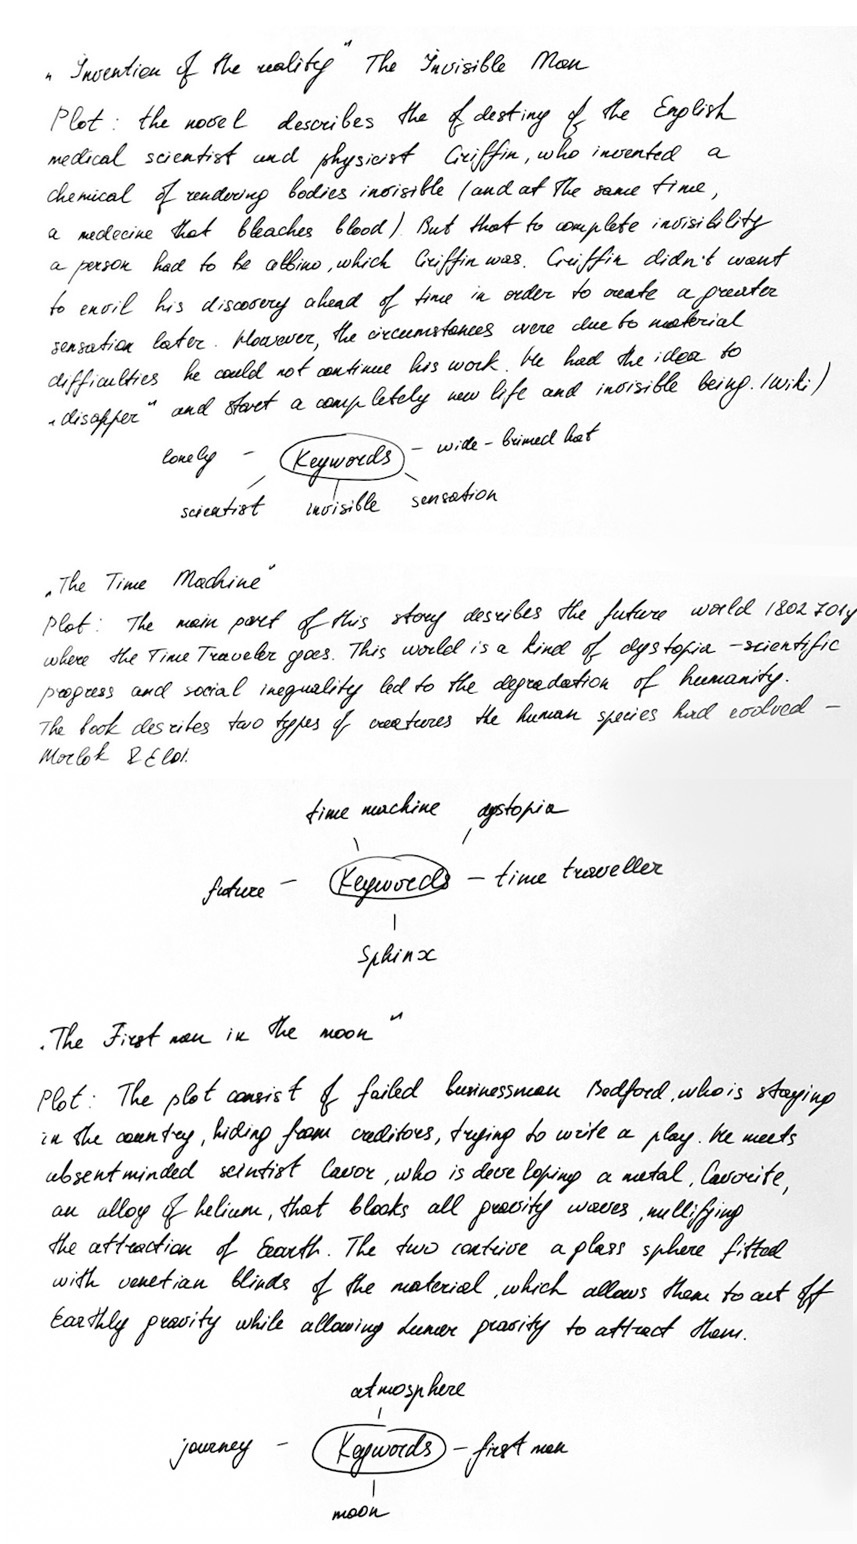 „Invention of the reality" The Invisible Man
Plot: the novel describes the of destiny of the English
medical scientist and physicist Griffin, who invented a
chemical of rendering bodies invisible (and at the same time,
a medecine that bleaches blood). But that to complete invisibility
a person had to be albino, which Griffin was. Griffin didn't want
to envil his discovery ahead of time in order to create a greater
sensation later. However, the circumstances were due to material
difficulties he could not continue his work. He had the idea to
„disapper" and start a completely new life and invisible being. (wiki)
lonely - Keywords - wide-brimed hat
scientist invisible sensation
„The Time Machine"
Plot: The main part of this story desribes the future world (802 701y
where the Time Traveler goes. This world is a kind of dystopia - scientific
progress and social inequality led to the degradation of humanity.
The book desribes two types of creatures the human species had evolved -
Morlok & Eloi.
time machine dystopia
future - Keywords - time traveller
Sphinx
„The First men in the moon"
Plot: The plot consist of failed businessman Bedford, who is staying
in the country, hiding from creditors, trying to write a play. He meets
absent minded scintist Cavor, who is developing a metal, Cavorite,
an alloy of helium, that blocks all gravity waves, nullifying
the attraction of Earth. The two contrive a glass sphere fitted
with venetian blinds of the material, which allows them to cut off
Earthly gravity while allowing Lunar gravity to attract them.
atmosphere
journey - Keywords - first men
moon